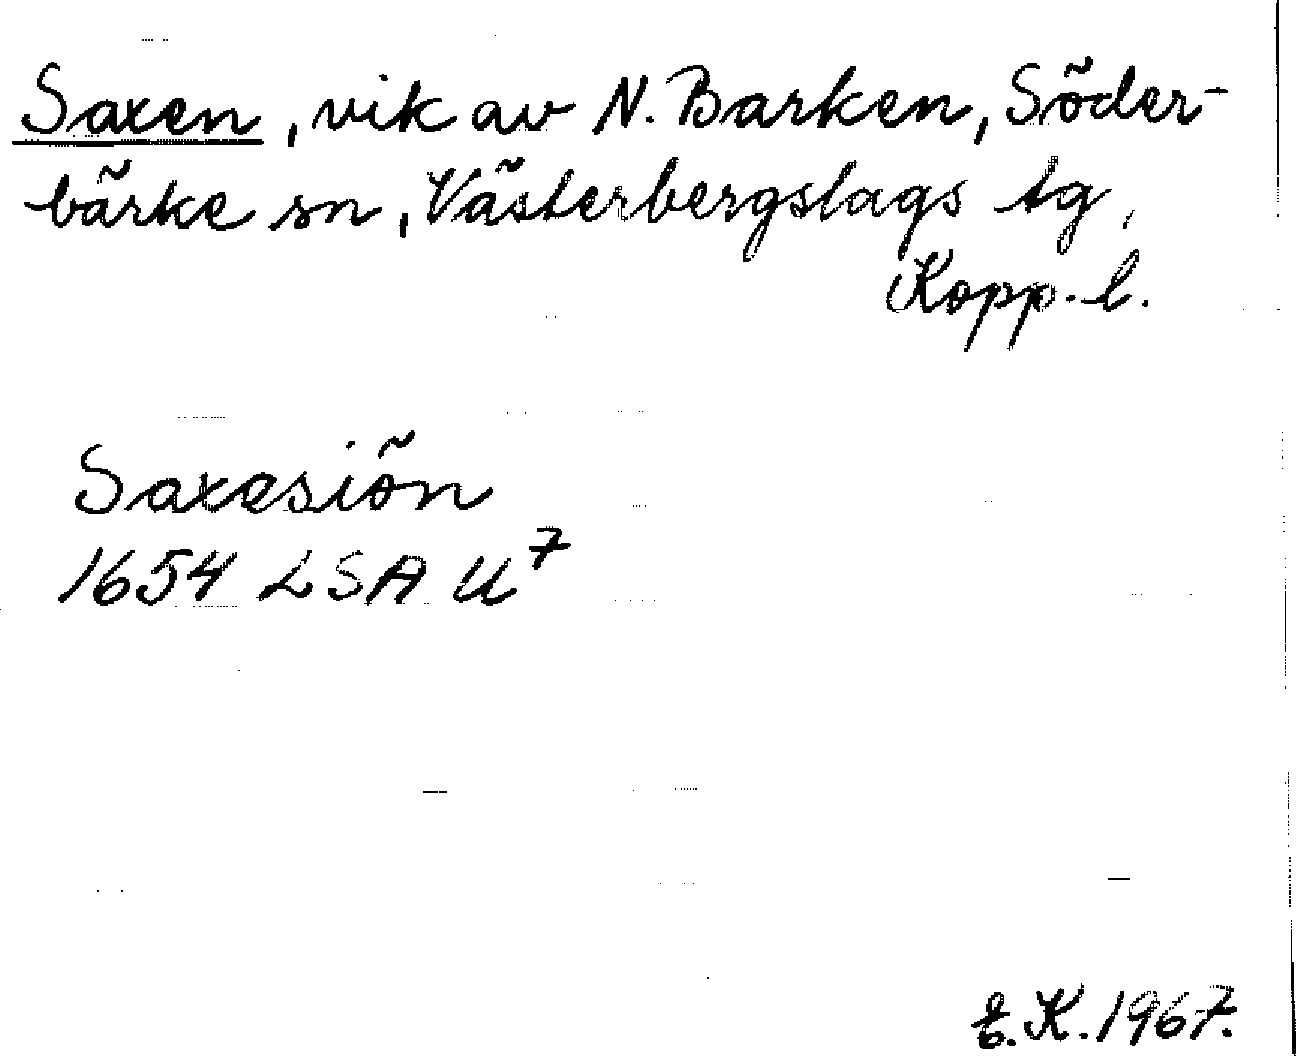 Saxen, vik av N. Barken, Söder-
bärke sn, Västerbergslags tg,
Kopp. l.
Saxesiön
1654 LSA U⁷
K. 1967.